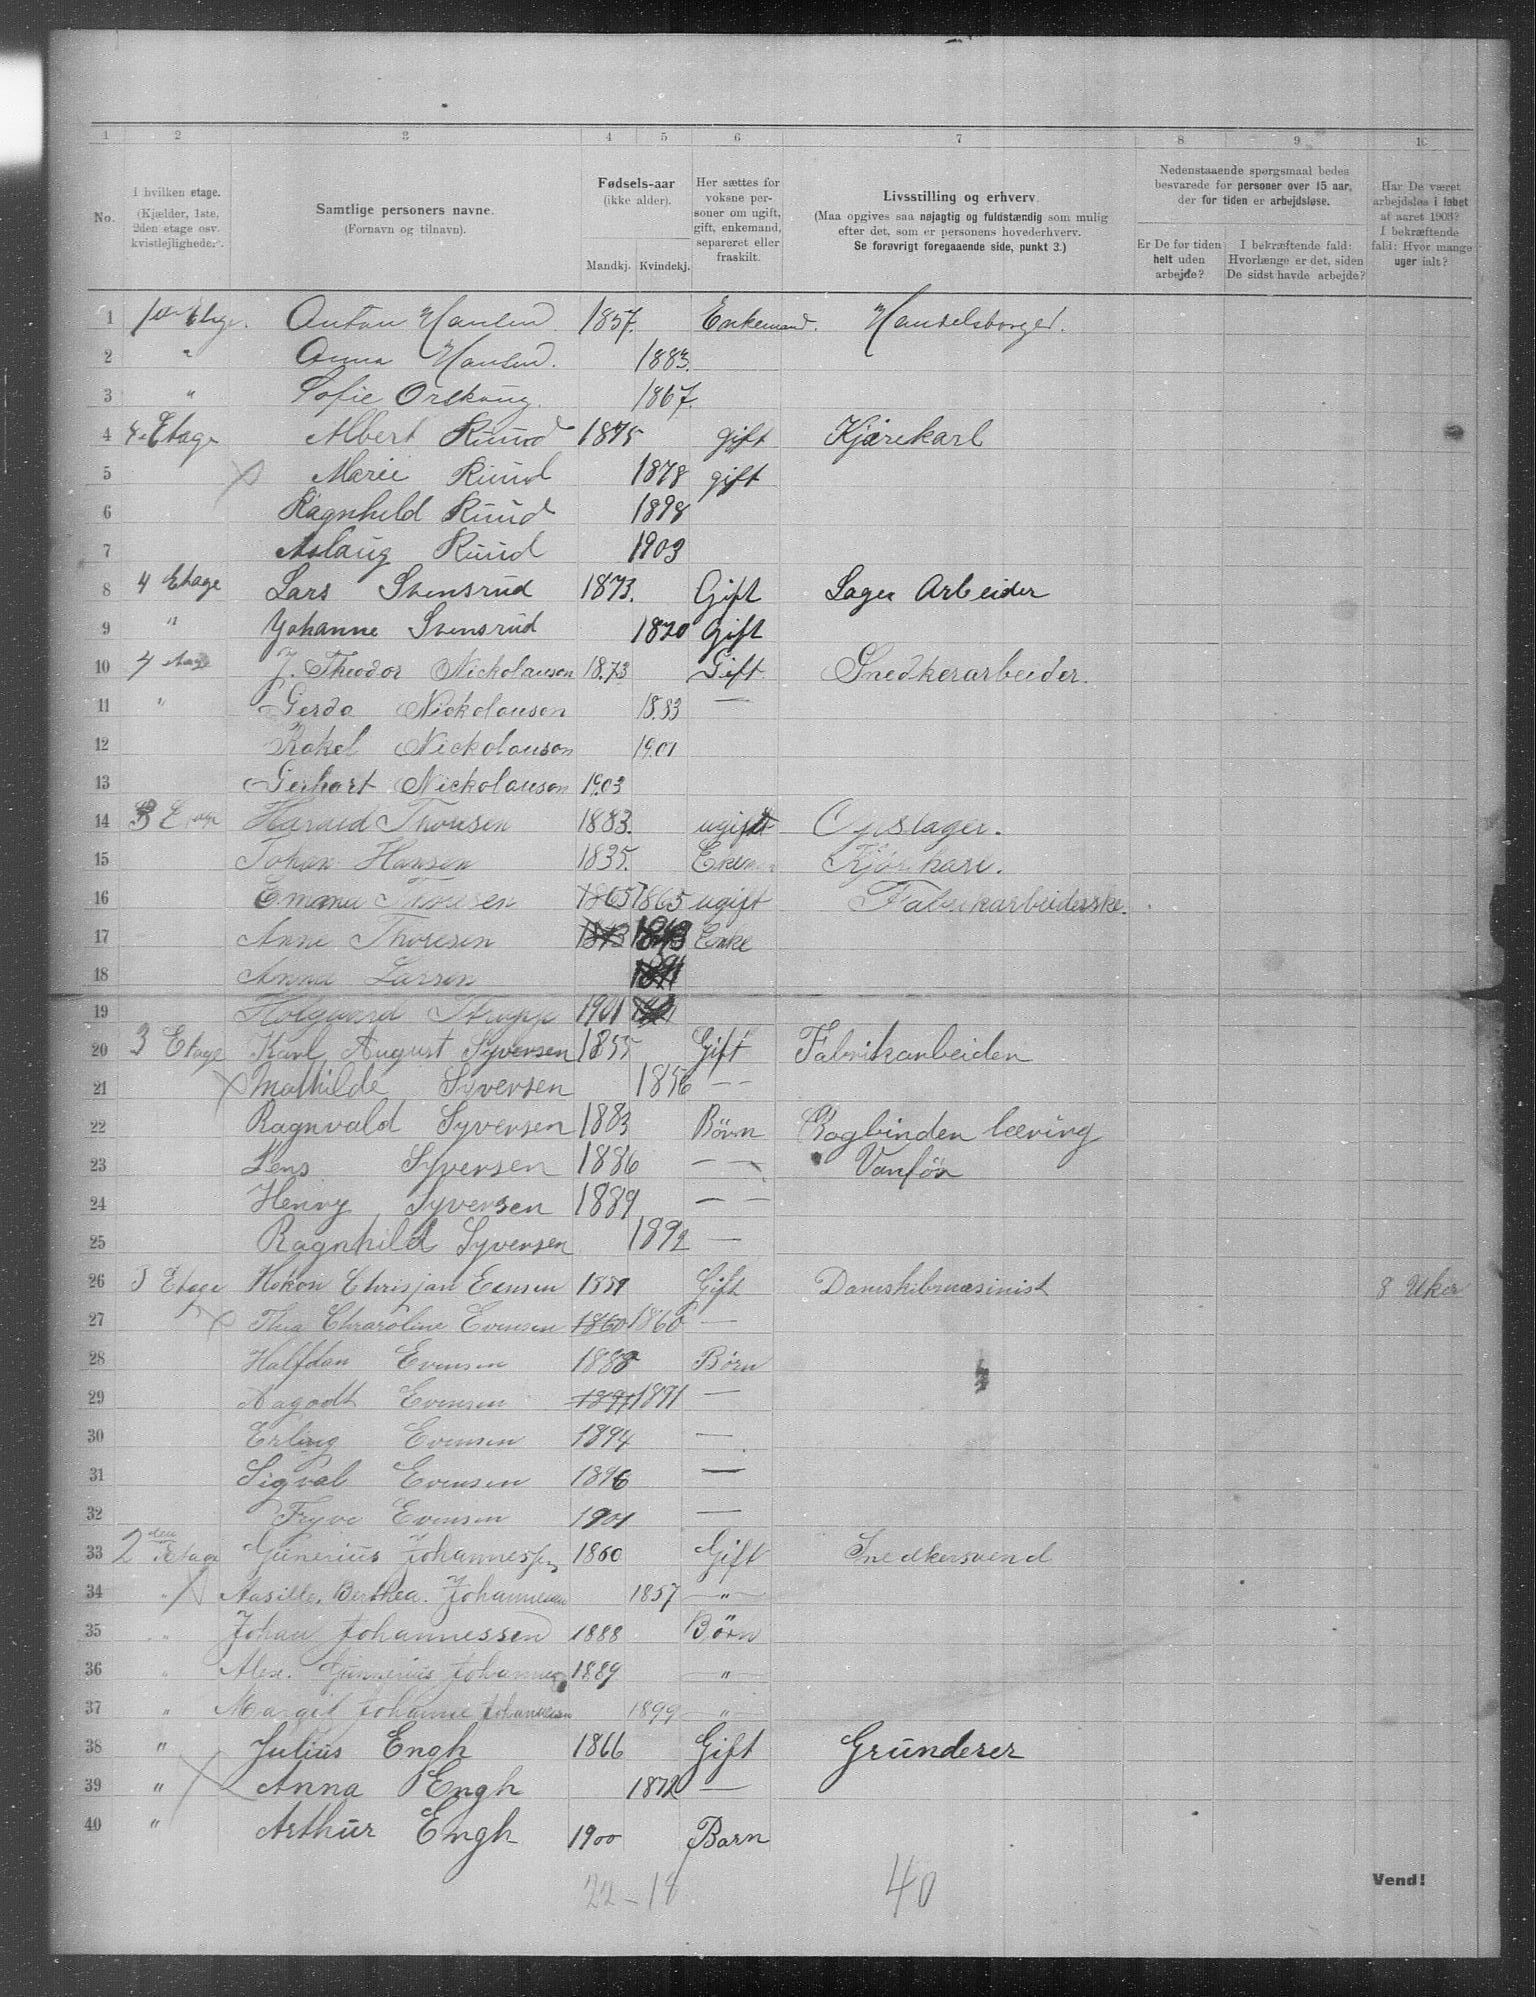 1 2 3 4 5 6 7 8 9 10
No. | I hvilken etage. (Kjælder, 1ste, 2den etage osv. kvistleiligheder). | Samtlige personers navne. (Fornavn og tilnavn). | Fødsels-aar (ikke alder). Mandkj. Kvindekj. | Her sættes for voksne personer om ugift, gift, enkemand, separeret eller fraskilt. | Livsstilling og erhverv. (Maa opgives saa nøjagtig og fuldstændig som mulig efter det, som er personens hovederhverv. Se forøvrigt foregaaende side, punkt 3.) | Nedenstaaende spørgsmaal bedes besvarede for personer over 15 aar, der for tiden er arbejdsløse. Er De for tiden helt uden arbejde? I bekræftende fald: Hvorlænge er det, siden De sidst havde arbejde? | Har De været arbejdsløs i løbet af aaret 1903? I bekræftende fald: Hvor mange uger ialt?
1 Etage. Anton Hansen 1857. Enkemand. Handelsborger.
2 " Anna Hansen. 1883.
3 " Sofie 1867.
4 4. Etage Albert Ruud 1875 gift Kjørekarl
5 Marie Ruud 1878 gift
6 Ragnhild Ruud 1898
7 Aslaug Ruud 1903
8 4 Etage Lars Svensrud 1873. Gift Lager Arbeider
9 " Johanne Svensrud 1870 Gift
10 4 etage J. Theodor Nickolauson 1873 Gift Snedkerarbeider.
11 " Gerda Nickolauson 1883 —
12 Rakel Nickolauson 1901
13 Gerhart Nickolauson 1903
14 3 Etage Harald Thoresen 1883. ugift Opslager.
15 Johan Hansen 1835. Kjørekarl.
16 Emma Thoresen 1865 1865 ugift Fabrikarbeiderske.
17 Anne Thoresen 1843 1843 Enke
18 Anna Larsen 1891
19 1901
20 3 Etage Karl August Syversen 1855 Gift Fabrikarbeider
21 Mathilde Syversen 1856 — —
22 Ragnvald Syversen 1883 Børn Bogbinder læring
23 Jens Syversen 1886 — — Vanfør
24 Henry Syversen 1889 — —
25 Ragnhild Syversen 1892 —
26 3 Etage Hokon Chrisjan Evensen 1859 Gift Dampskibsmasinist 8 Uker
27 Thea Charoline Evensen 1860 1860 —
28 Halfdan Evensen 1888 Børn
29 Aagodt Evensen 1891 1891 —
30 Erling Evensen 1894 —
31 Sigval Evensen 1896 —
32 Fryve Evensen 1901 —
33 2den Etage Gunerius Johannessen 1860 Gift Snedkersvend
34 " Berthea. Johannessen 1857 — " —
35 " Johan Johannessen 1888 Børn
36 " Alex. Gunnerius Johannes 1889 — " —
37 " Margit Johanne Johannessen 1899 — " —
38 " Julius Engh 1866 Gift Grunderer
39 " Anna Engh 1872 —
40 " Arthur Engh 1900 Barn
22 – 18 40
Vend!